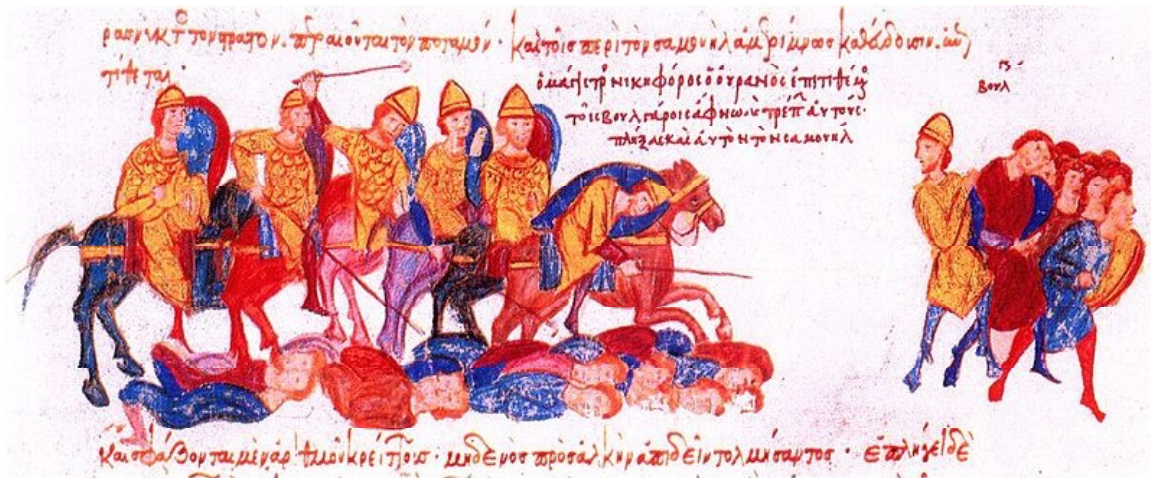 τὸν στρατὸν. περαιοῦνται τὸν ποταμὸν. καὶ τοῖς περὶ τὸν σαμουὴλ ἀμερίμνως καθεύδουσιν.
τίθεται.
ὁ μάγιστρος νικηφόρος ὁ οὐρανὸς ἐπιτιθέμ
τοῖς βουλγάροις ἄφνω. κ τρέπ αὐτούς.
πλήξας καὶ αὐτὸν τὸν σαμουήλ
βουλγ
καὶ σφάζονται μὲν ἀριθμοῦ κρείττους. μηδενὸς πρὸς ἀλκὴν ἀπιδεῖν τολμήσαντος. ἐπλήγει δὲ